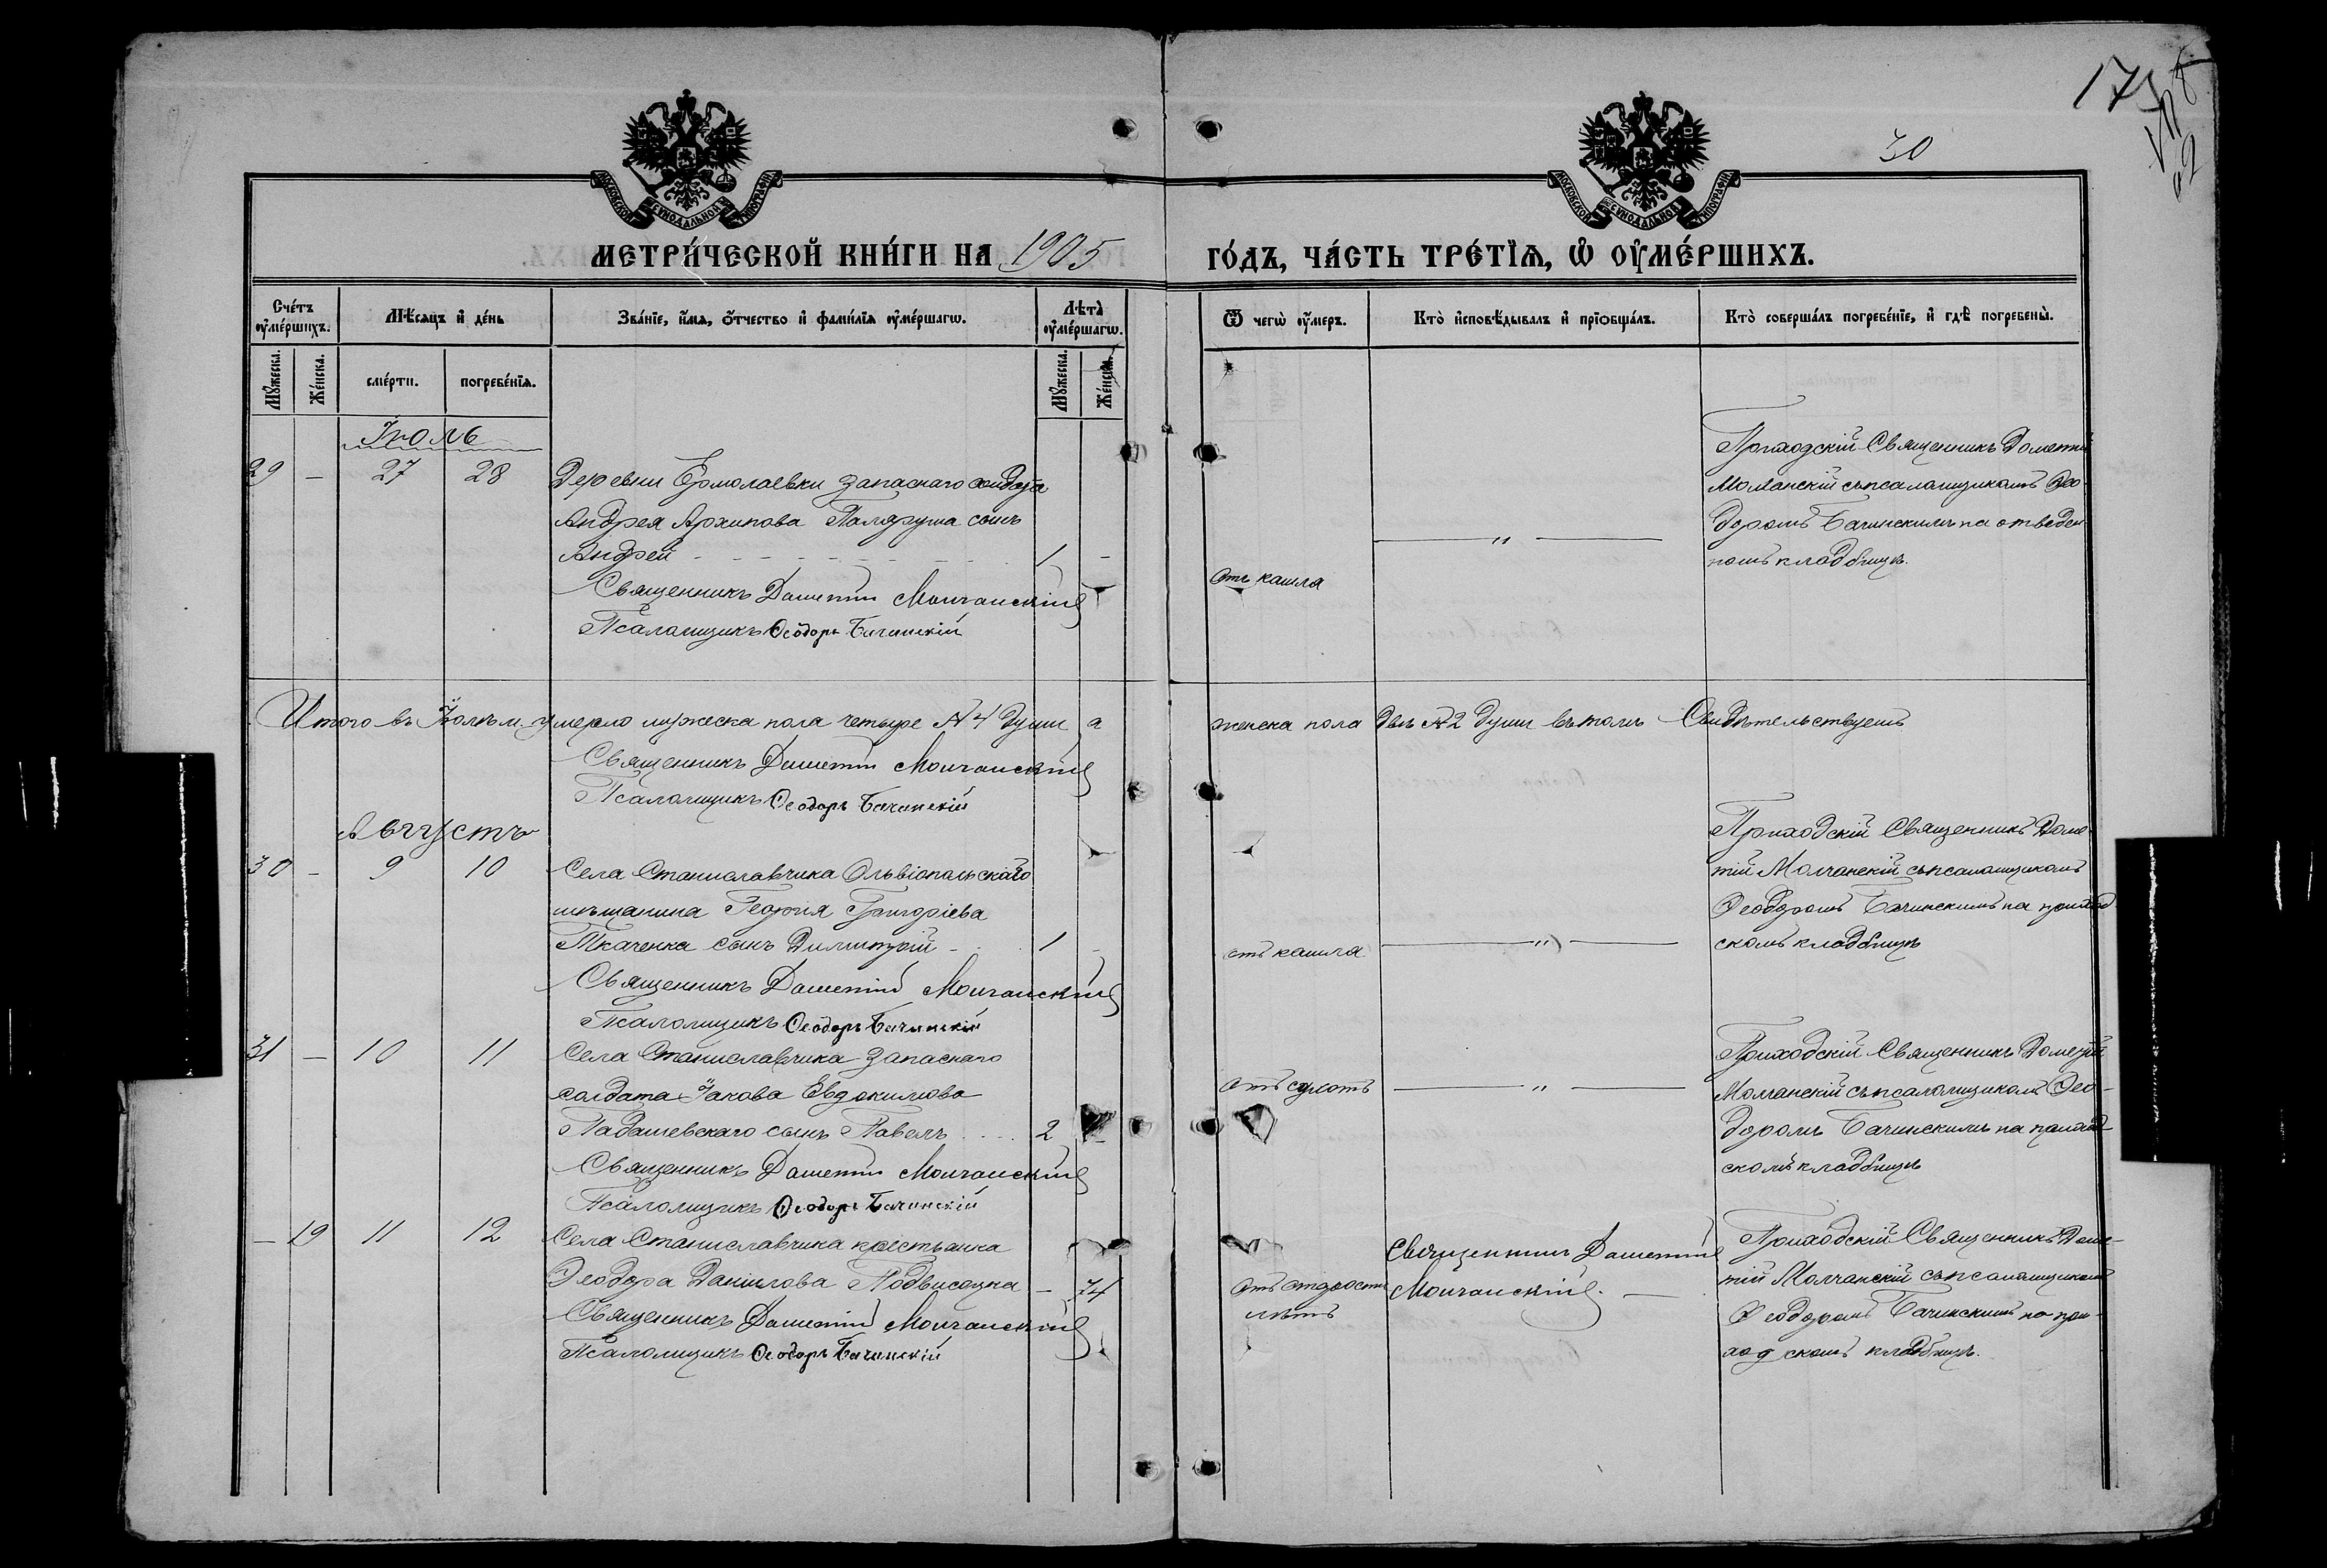 30
МОСКОВСКОЙ СѴНОДАЛЬНОЙ ТИПОГРАФІИ
МОСКОВСКОЙ СѴНОДАЛЬНОЙ ТИПОГРАФІИ
МЕТРИ́ЧЕСКОЙ КНИ́ГИ НА 1905 ГО́ДЪ, ЧА́СТЬ ТРЕ́ТЇѦ, Ѡ ОУ҆МЕ́РШИХЪ.
Счéтъ оу҆мéршихъ.
Мѣ́сѧцъ и҆ дéнь
Звáнїе, и҆́мѧ, ѻ҆́тчество и҆ фамѝлїѧ оу҆мéршагѡ.
Лѣ̑та̀ оу҆мéршагѡ.
Ѿ чегѡ̀ оу҆́меръ.
Кто̀ и҆сповѣ́дывалъ и҆ прїѻбщáлъ.
Кто̀ совершáлъ погребéнїе, и҆ гдѣ̀ погребены̀.
Мꙋ́жеска.
Жéнска.
смéрти.
погребéнїѧ.
Мꙋ́жеска.
Жéнска.
Іюль
29 – 27 28 Деревни Ермолаевки запаснаго солдата
Андрея Архипова сынъ
Андрей 1 –
Священникъ Дометій Молчанскій
Псаломщикъ Ѳеодоръ Бачинскій
отъ кашля
— „ —
Приходскій Священникъ Дометій
Молчанскій съ псаломщикомъ Ѳео-
доромъ Бачинскимъ на отведен
номъ кладбищѣ.
Итого въ Іюлѣ м. умерло мужеска пола четыре № 4 души а женска пола двѣ № 2 души въ томъ Свидѣтельствуемъ
Священникъ Дометій Молчанскій
Псаломщикъ Ѳеодоръ Бачинскій
Августъ
30 – 9 10 Села Станиславчика Ольвіопольскаго
мѣщанина Георгія Григоріева
Ткаченка сынъ Димитрій 1 –
Священникъ Дометій Молчанскій
Псаломщикъ Ѳеодоръ Бачинскій
отъ кашля
— „ —
Приходскій Священникъ Доме-
тій Молчанскій съ псаломщикомъ
Ѳеодоромъ Бачинскимъ на приход-
скомъ кладбищѣ
31 – 10 11 Села Станиславчика запаснаго
солдата Іакова Евдокимова
сынъ Павелъ 2 –
Священникъ Дометій Молчанскій
Псаломщикъ Ѳеодоръ Бачинскій
— „ —
Приходскій Священникъ Дометій
Молчанскій съ псаломщикомъ Ѳео-
доромъ Бачинскимъ на приход-
скомъ кладбищѣ
– 19 11 12 Села Станиславчика крестьянка
Ѳеодора Даніилова Подвисоцка – 74
Священникъ Дометій Молчанскій
Псаломщикъ Ѳеодоръ Бачинскій
отъ старости
лѣтъ
Священникъ Дометій
Молчанскій.
Приходскій Священникъ Доме-
тій Молчанскій съ псаломщикомъ
Ѳеодоромъ Бачинскимъ на при-
ходскомъ кладбищѣ.